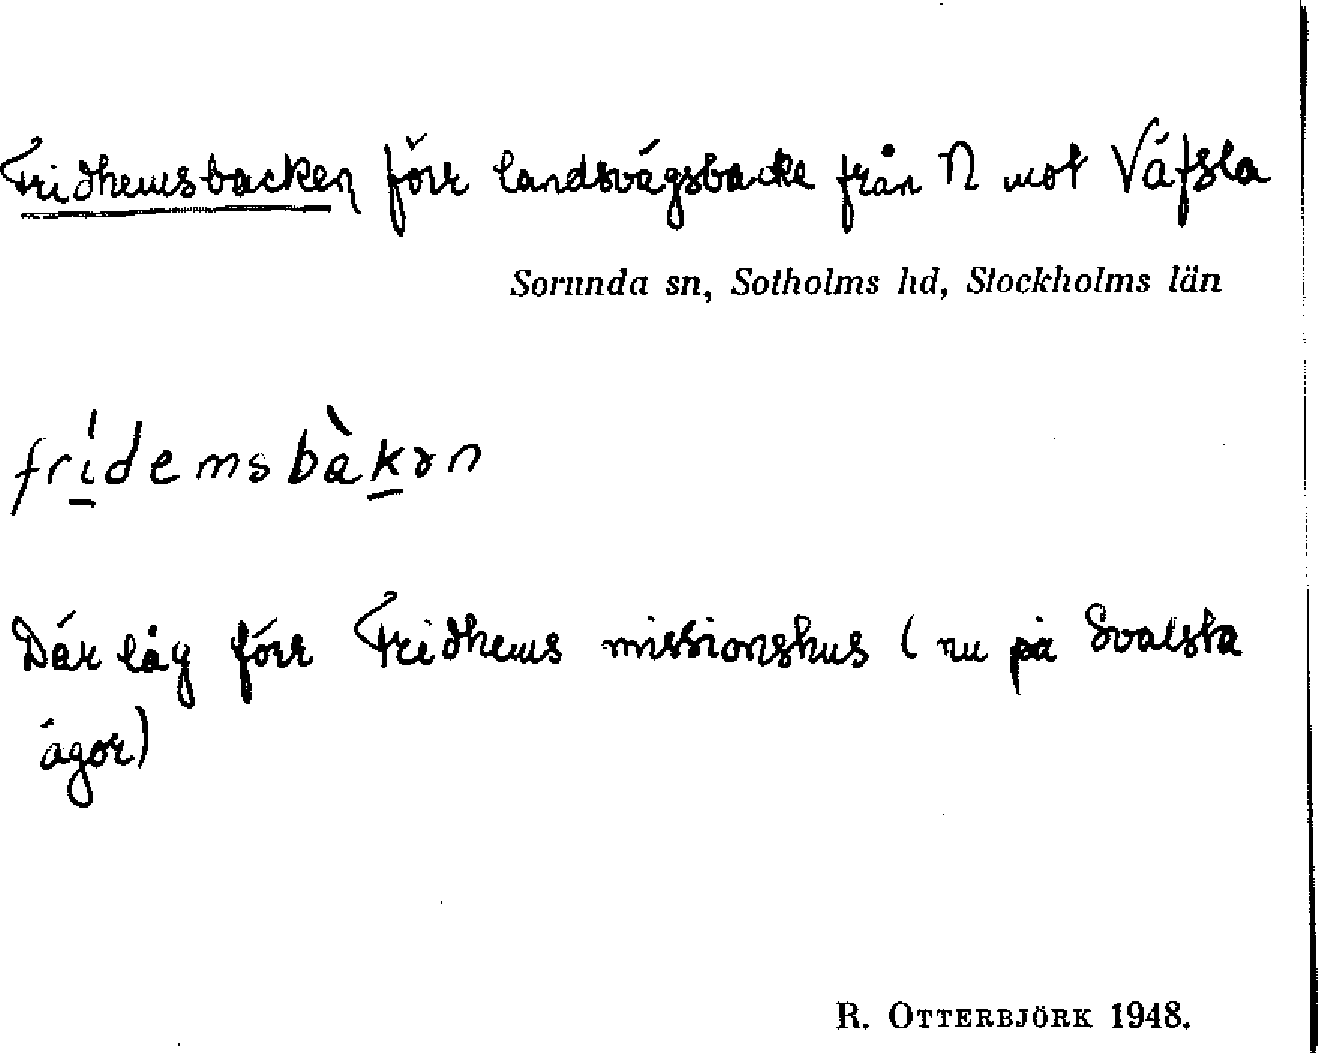 Fridhemsbacken förr landsvägsbacke från N mot Väfsla
Sorunda sn, Sotholms hd, Stockholms län
frídemsbàkən
Där låg förr Fridhems missionshus (nu på Svalsta
ägor)
R. OTTERBJÖRK 1948.